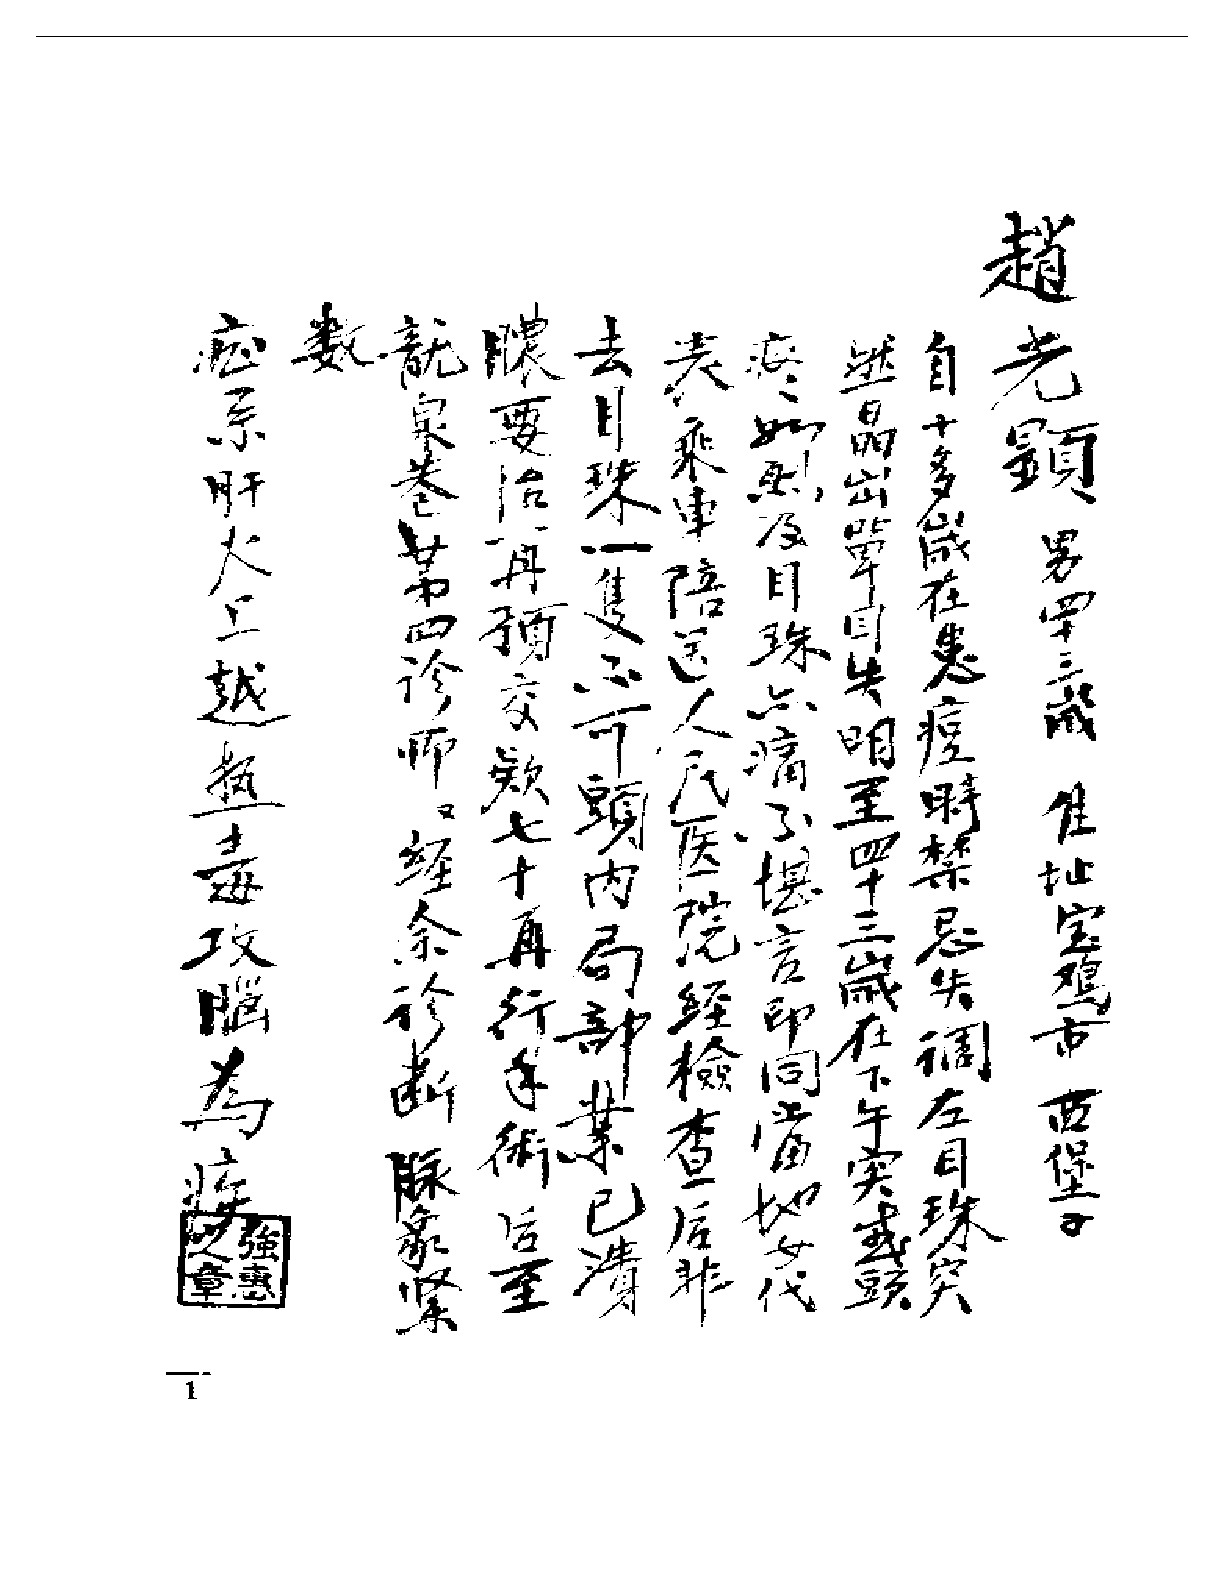 趙光顕 男四十三歲 住址宝鸡市西堡子
自十多歲在患痘時禁忌失调左目珠突
然晶出單目失明至四十三歲在下午突或頭
疼如烈及目珠亦痛不堪言即同當地女代
表乘車陪送人民医院經檢查后非
去目珠一隻不可頭内局部業已潰
膿要治再預交欵七十再行手術后至
龍泉巷第四诊所经余诊断脉象紧
数
症系肝火上越热毒攻腦為疾
強惠之章
1